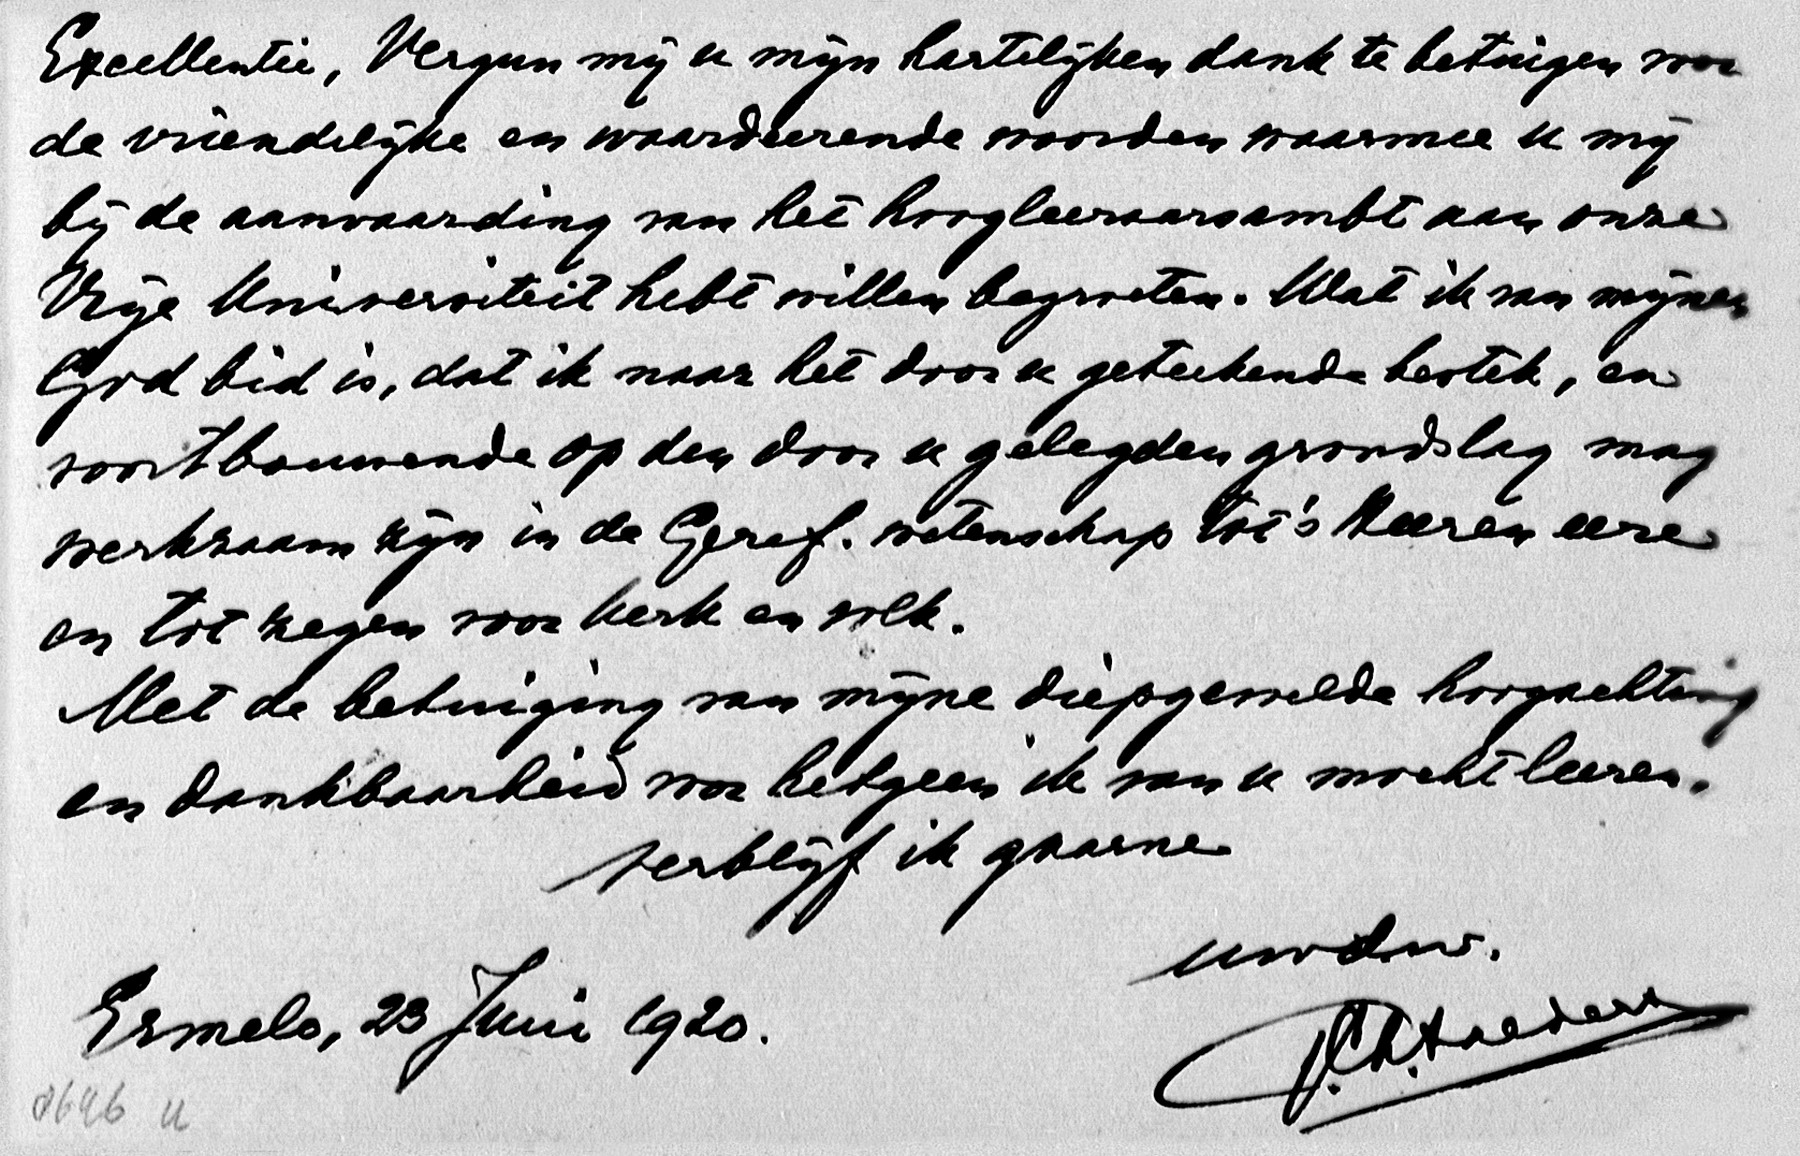 Excellentie, Vergun mij u mijn hartelijken dank te betuigen voor
de vriendelijke en waardeerende woorden waarmee u mij
bij de aanvaarding van het hoogleeraarsambt aan onze
Vrije Universiteit hebt willen begroeten. Wat ik van mijnen
God bid is, dat ik naar het door u geteekende bestek, en
voortbouwende op den door u gelegden grondslag mag
werkzaam zijn in de Geref. wetenschap tot 's Heeren eere
en tot zegen voor kerk en volk.
Met de betuiging van mijne diepgevoelde hoogachting
en dankbaarheid voor hetgeen ik van u mocht leeren.
verblijf ik gaarne
uwdw.
Ermelo, 23 Juni 1920.